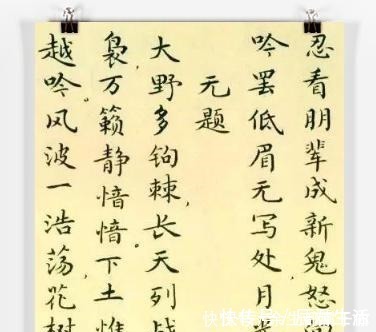 忍看朋辈成新鬼,怒
吟罢低眉无写处,月
无题
大野多钩棘,长天列
袅,万籁静愔愔。下土惟
越吟。风波一浩荡,花树
快传号